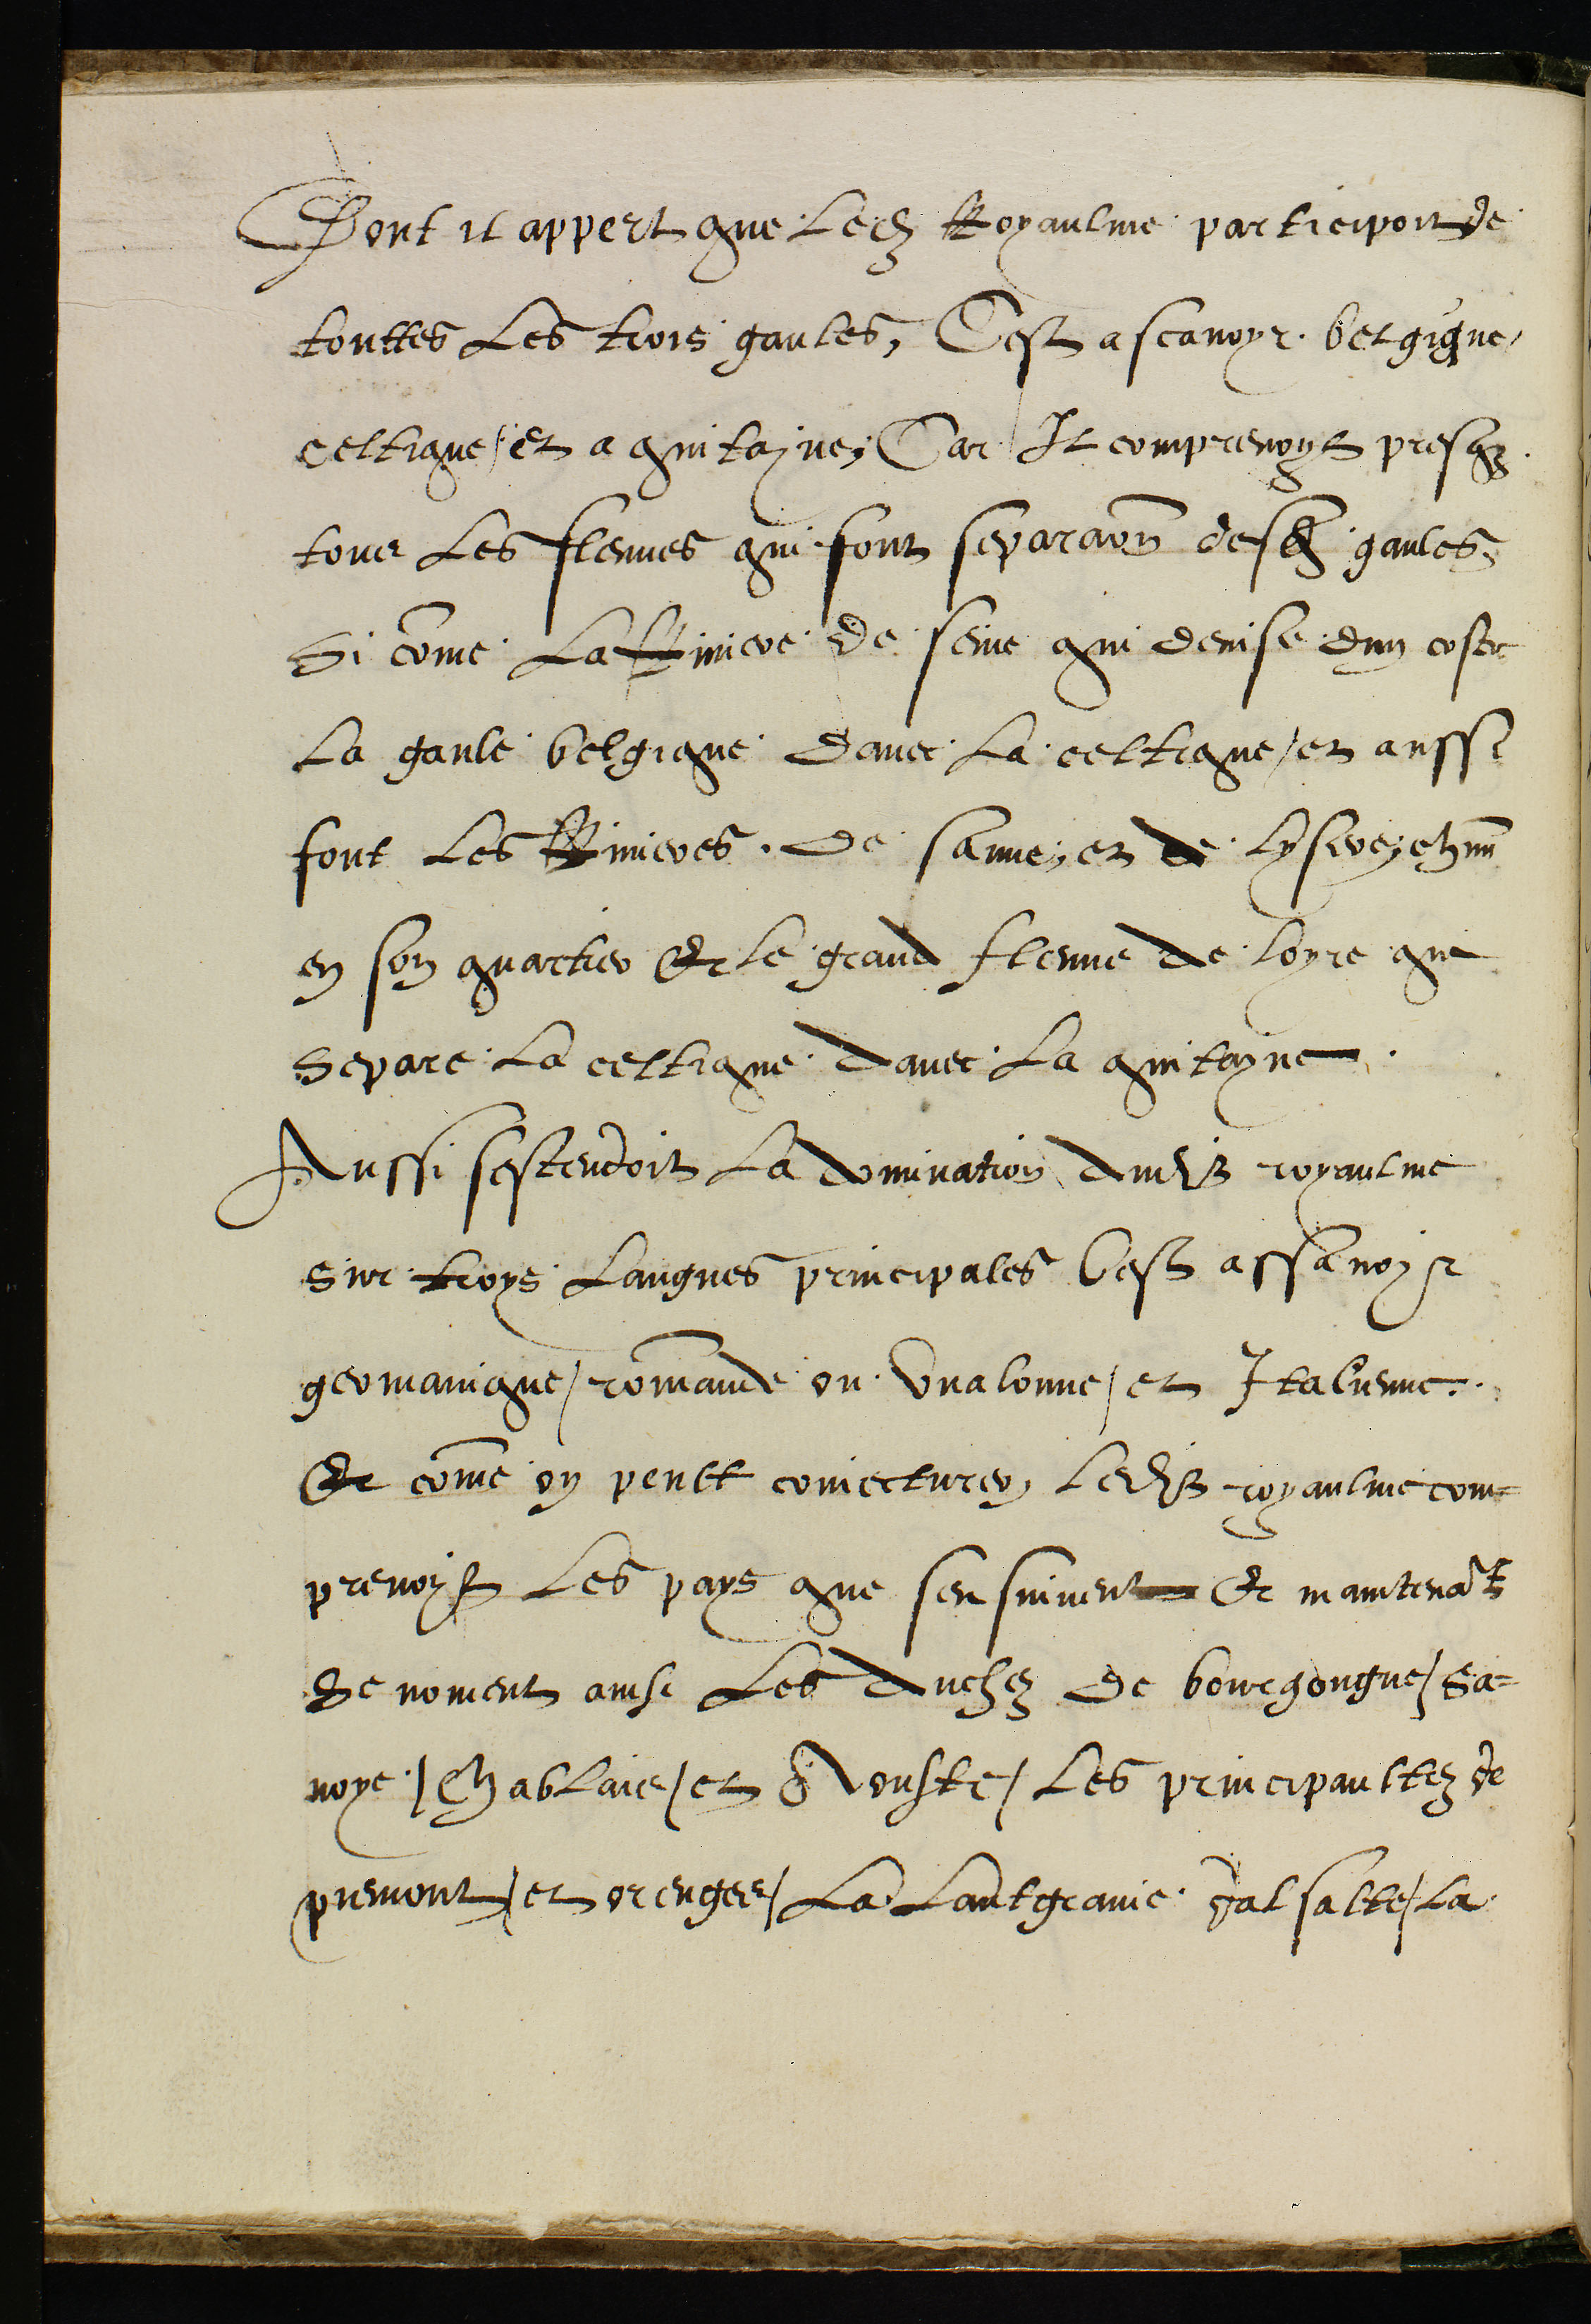 Dont il appert que ledz Royaulme participoit de
touttes les trois gaules, C'est a scavoyr. belgique,
celticque / et aquitayne, Car Il comprenoyt presqz
tous les fleuves qui font separaõn desdz gaules,
Si cõme la Riviere de seine qui devise dun coste
la gaule belgique davec la celtique / et aussi
font les Rivieres. de saune, et de lysere, chũn
en son quartier Et le grand fleuve de loyre que
Separe la celtique davec la quitayne.
Aussi sestendoit la domination dudit royaulme
Sur troys langues principales Cest assavoyr
germanique / rõmande ou Vualonne / et Italienne.
Et cõme on peult coniecturer ledit royaulme com=
prenoyt les pays que sensuivent Et maintenãt
Se noment ainsi Les duchez de bourgongne / Sa=
voye / Chablais / et Aouste / les principaultez de
piemont / et orenges / La Lantgravie dalsatte / la